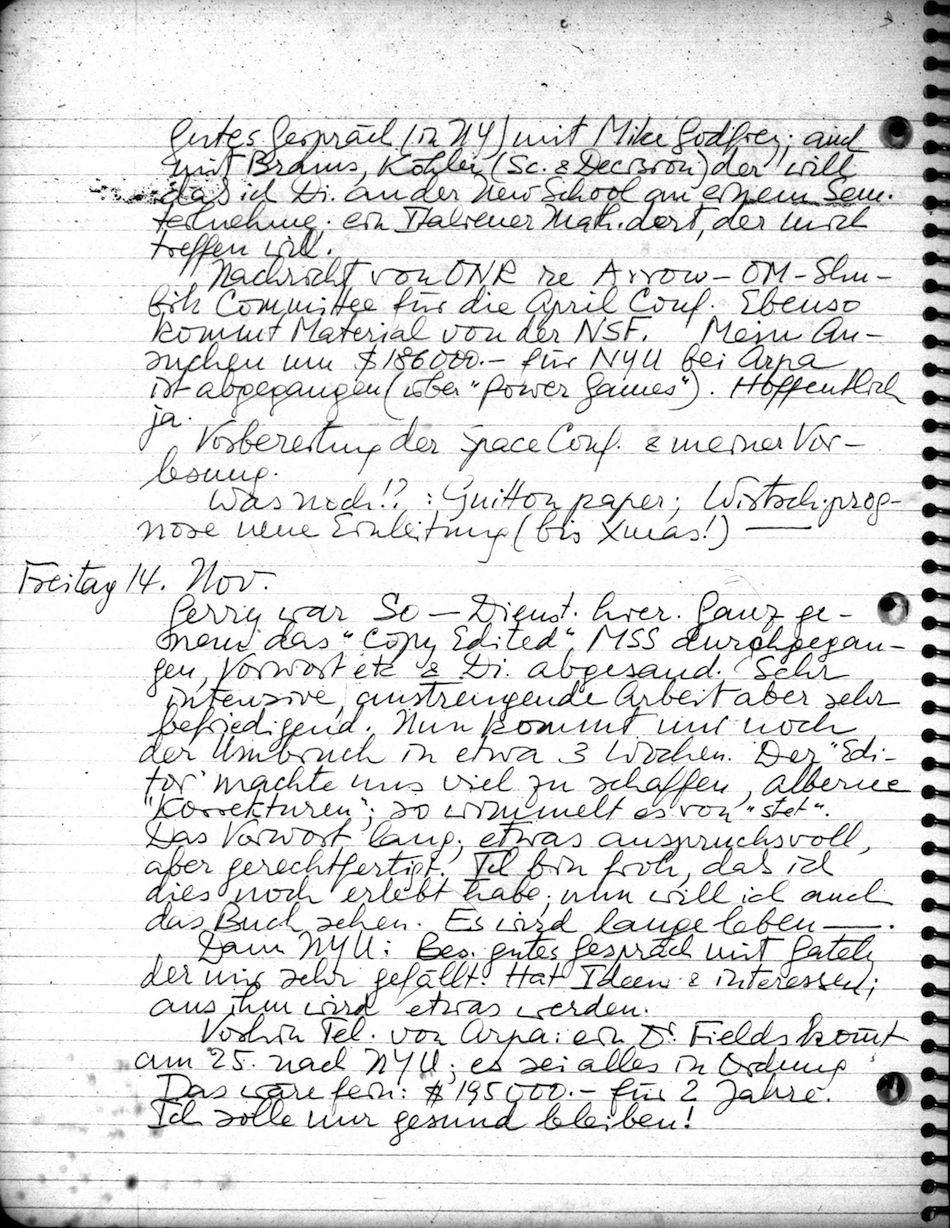 Gutes Gespräch (in NY) mit Mike Godfrey; auch
mit Brams, Köhler (Sc. & Decision) der will
daß ich Di. an der New School an einem Sem.
teilnehme. ein Italiener Math. dort, der mich
treffen will.
Nachricht von ONR re Arrow – OM – Shu-
bik Committee für die April Conf. Ebenso
kommt Material von der NSF. Mein An-
suchen um $186000.– für NYU bei Arpa
ist abgegangen (über "Power Games"). Hoffentlich
ja.
Vorbereitung der Space Conf. & meiner Vor-
lesung.
Was noch!? : Guitton paper; Wirtsch.prog-
nose neue Einleitung (bis Xmas!) —
Freitag 14. Nov.
Gerry war So – Dienst. hier. Ganz ge-
nau das "Copy Edited" MSS durchgegan-
gen, Vorwort etc & Di. abgesand. Sehr
intensive, anstrengende Arbeit aber sehr
befriedigend. Nun kommt nur noch
der Umbruch in etwa 3 Wochen. Der "Edi-
tor" machte uns viel zu schaffen, alberne
"Korrekturen"; so wimmelt es von "stet".
Das Vorwort lang, etwas anspruchsvoll,
aber gerechtfertigt. Ich bin froh, daß ich
dies noch erlebt habe; nun will ich auch
das Buch sehen. Es wird lange leben —.
Dann NYU: Bes. gutes Gespräch mit
der mir sehr gefällt. Hat Ideen & interessen;
aus ihm wird etwas werden.
Vorhin Tel. von Arpa: ein Dr. Fields kommt
am 25. nach NYU; es sei alles in Ordnung
Das wäre fein: $195000.– für 2 Jahre.
Ich solle nur gesund bleiben!